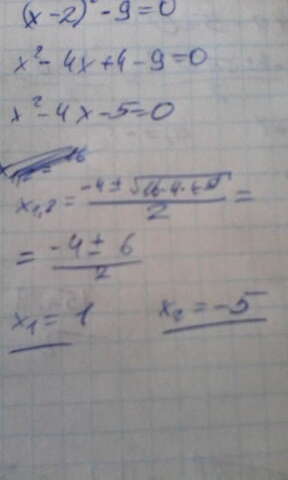 (x-2)² - 9 = 0
x² - 4x + 4 - 9 = 0
x² - 4x - 5 = 0
x₁,₂ = (-4 ± √(16-4·
= (-4 ± 6)/2
x₁ = 1 x₂ = -5